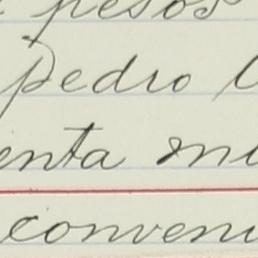 pesos
pedro
enta mi
conveni